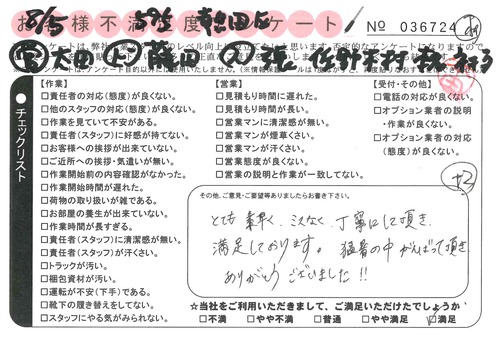 8/5
お客様不満足度アンケート!
No 036724
太田
佐野 木村
チェックリスト
【作業】
□責任者の対応(態度)が良くない。
□他のスタッフの対応(態度)が良くない。
□作業を見ていて不安がある。
□責任者(スタッフ)に好感が持てない。
□お客様への挨拶が出来ていない。
□ご近所への挨拶・気遣いが無い。
□作業開始前の内容確認がなかった。
□作業開始時間が遅れた。
□荷物の取り扱いが雑である。
□お部屋の養生が出来ていない。
□作業時間が長すぎる。
□責任者(スタッフ)に清潔感が無い。
□責任者(スタッフ)が汗くさい。
□トラックが汚い。
□梱包資材が汚い。
□運転が不安(下手)である。
□靴下の履き替えをしてない。
□スタッフにやる気がみられない。
【営業】
□見積もり時間に遅れた。
□見積もり時間が長い。
□営業マンに清潔感が無い。
□営業マンが煙草くさい。
□営業マンが汗くさい。
□営業態度が良くない。
□営業の説明と作業が一致してない。
【受付・その他】
□電話の対応が良くない。
□オプション業者の説明
・作業が良くない。
□オプション業者の対応
(態度)が良くない。
その他、ご意見・ご要望等ありましたらお書き下さい。
とても素早く、ミスなく、丁寧にして頂き
満足しております。猛暑の中がんばって頂き
ありがとうございました!!
☆当社をご利用いただきまして、ご満足いただけたでしょうか
□不満 □やや不満 □普通 □やや満足 ☑満足